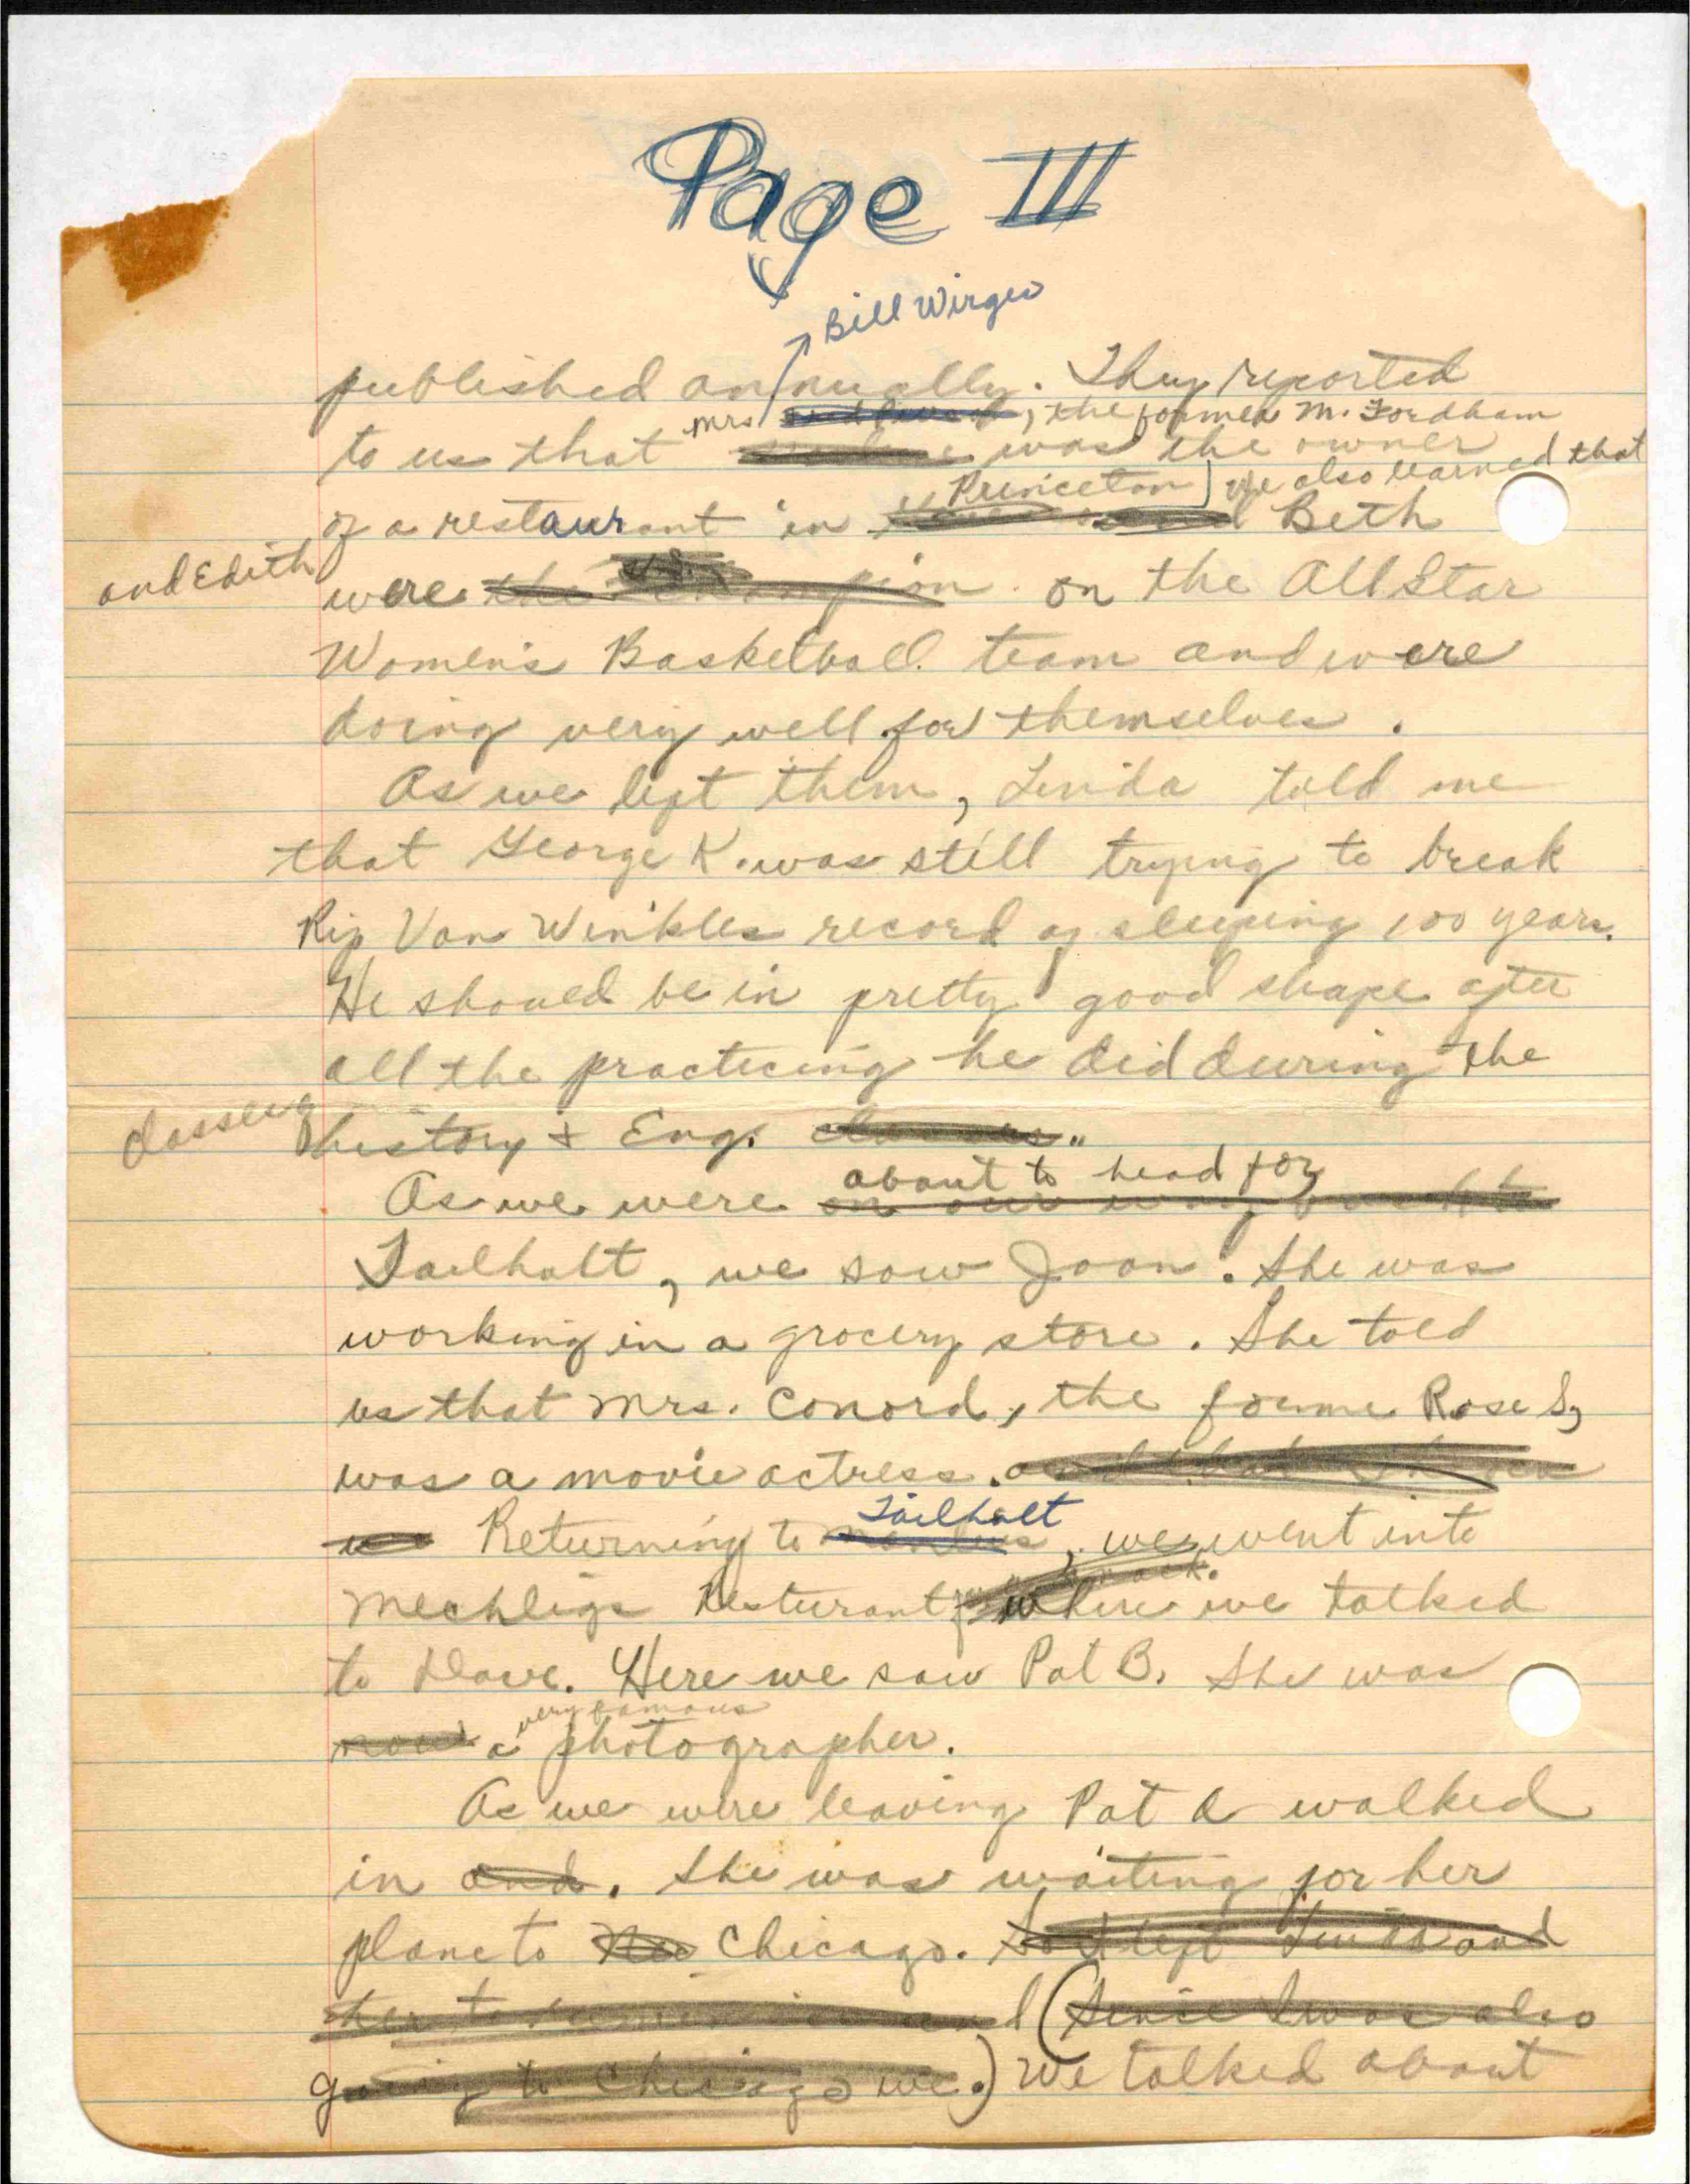 Page III
Bill Wirges
published annually. They reported
Mrs , the former M. Fordham
to us that was the owner
Princeton) We also learned that
of a restaurant in Beth
and Edith
were the champion on the All Star
Women's Basketball team and were
doing very well for themselves.
As we left them, Linda told me
that George K. was still trying to break
Rip Van Winkles record of sleeping 100 years.
He should be in pretty good shape after
all the practicing he did during the
classes
history & Eng. classes."
about to head for
As we were on our way back to
Tailholt, we saw Joan. She was
working in a grocery store. She told
us that Mrs. Conord, the forme Rose S,
was a movie actress. and that
Tailholt
we Returning to , we went into
Mechligs Resturant where we talked
to Dave. Here we saw Pat B. She was
very famous
now a photographer.
As we were leaving Pat A walked
in and. She was waiting for her
plane to New Chicago. So I left Linda and
her to (Since I was also
going to Chicago we.) We talked about